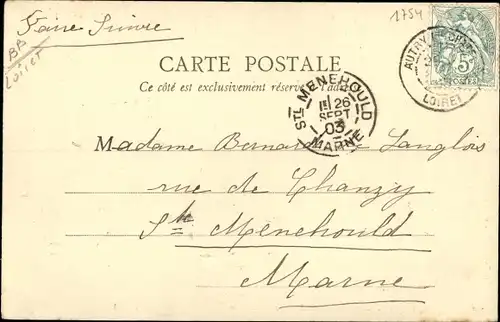 Faire Suivre
1754
BB
Loiret
CARTE POSTALE
Ce côté est exclusivement réservé à l'adresse
STE MENEHOULD
1E 26
SEPT
03
MARNE
AUTRY
LOIRET
5c
POSTES
Madame Bernard Langlois
rue de Chanzy
Ste Menehould
Marne